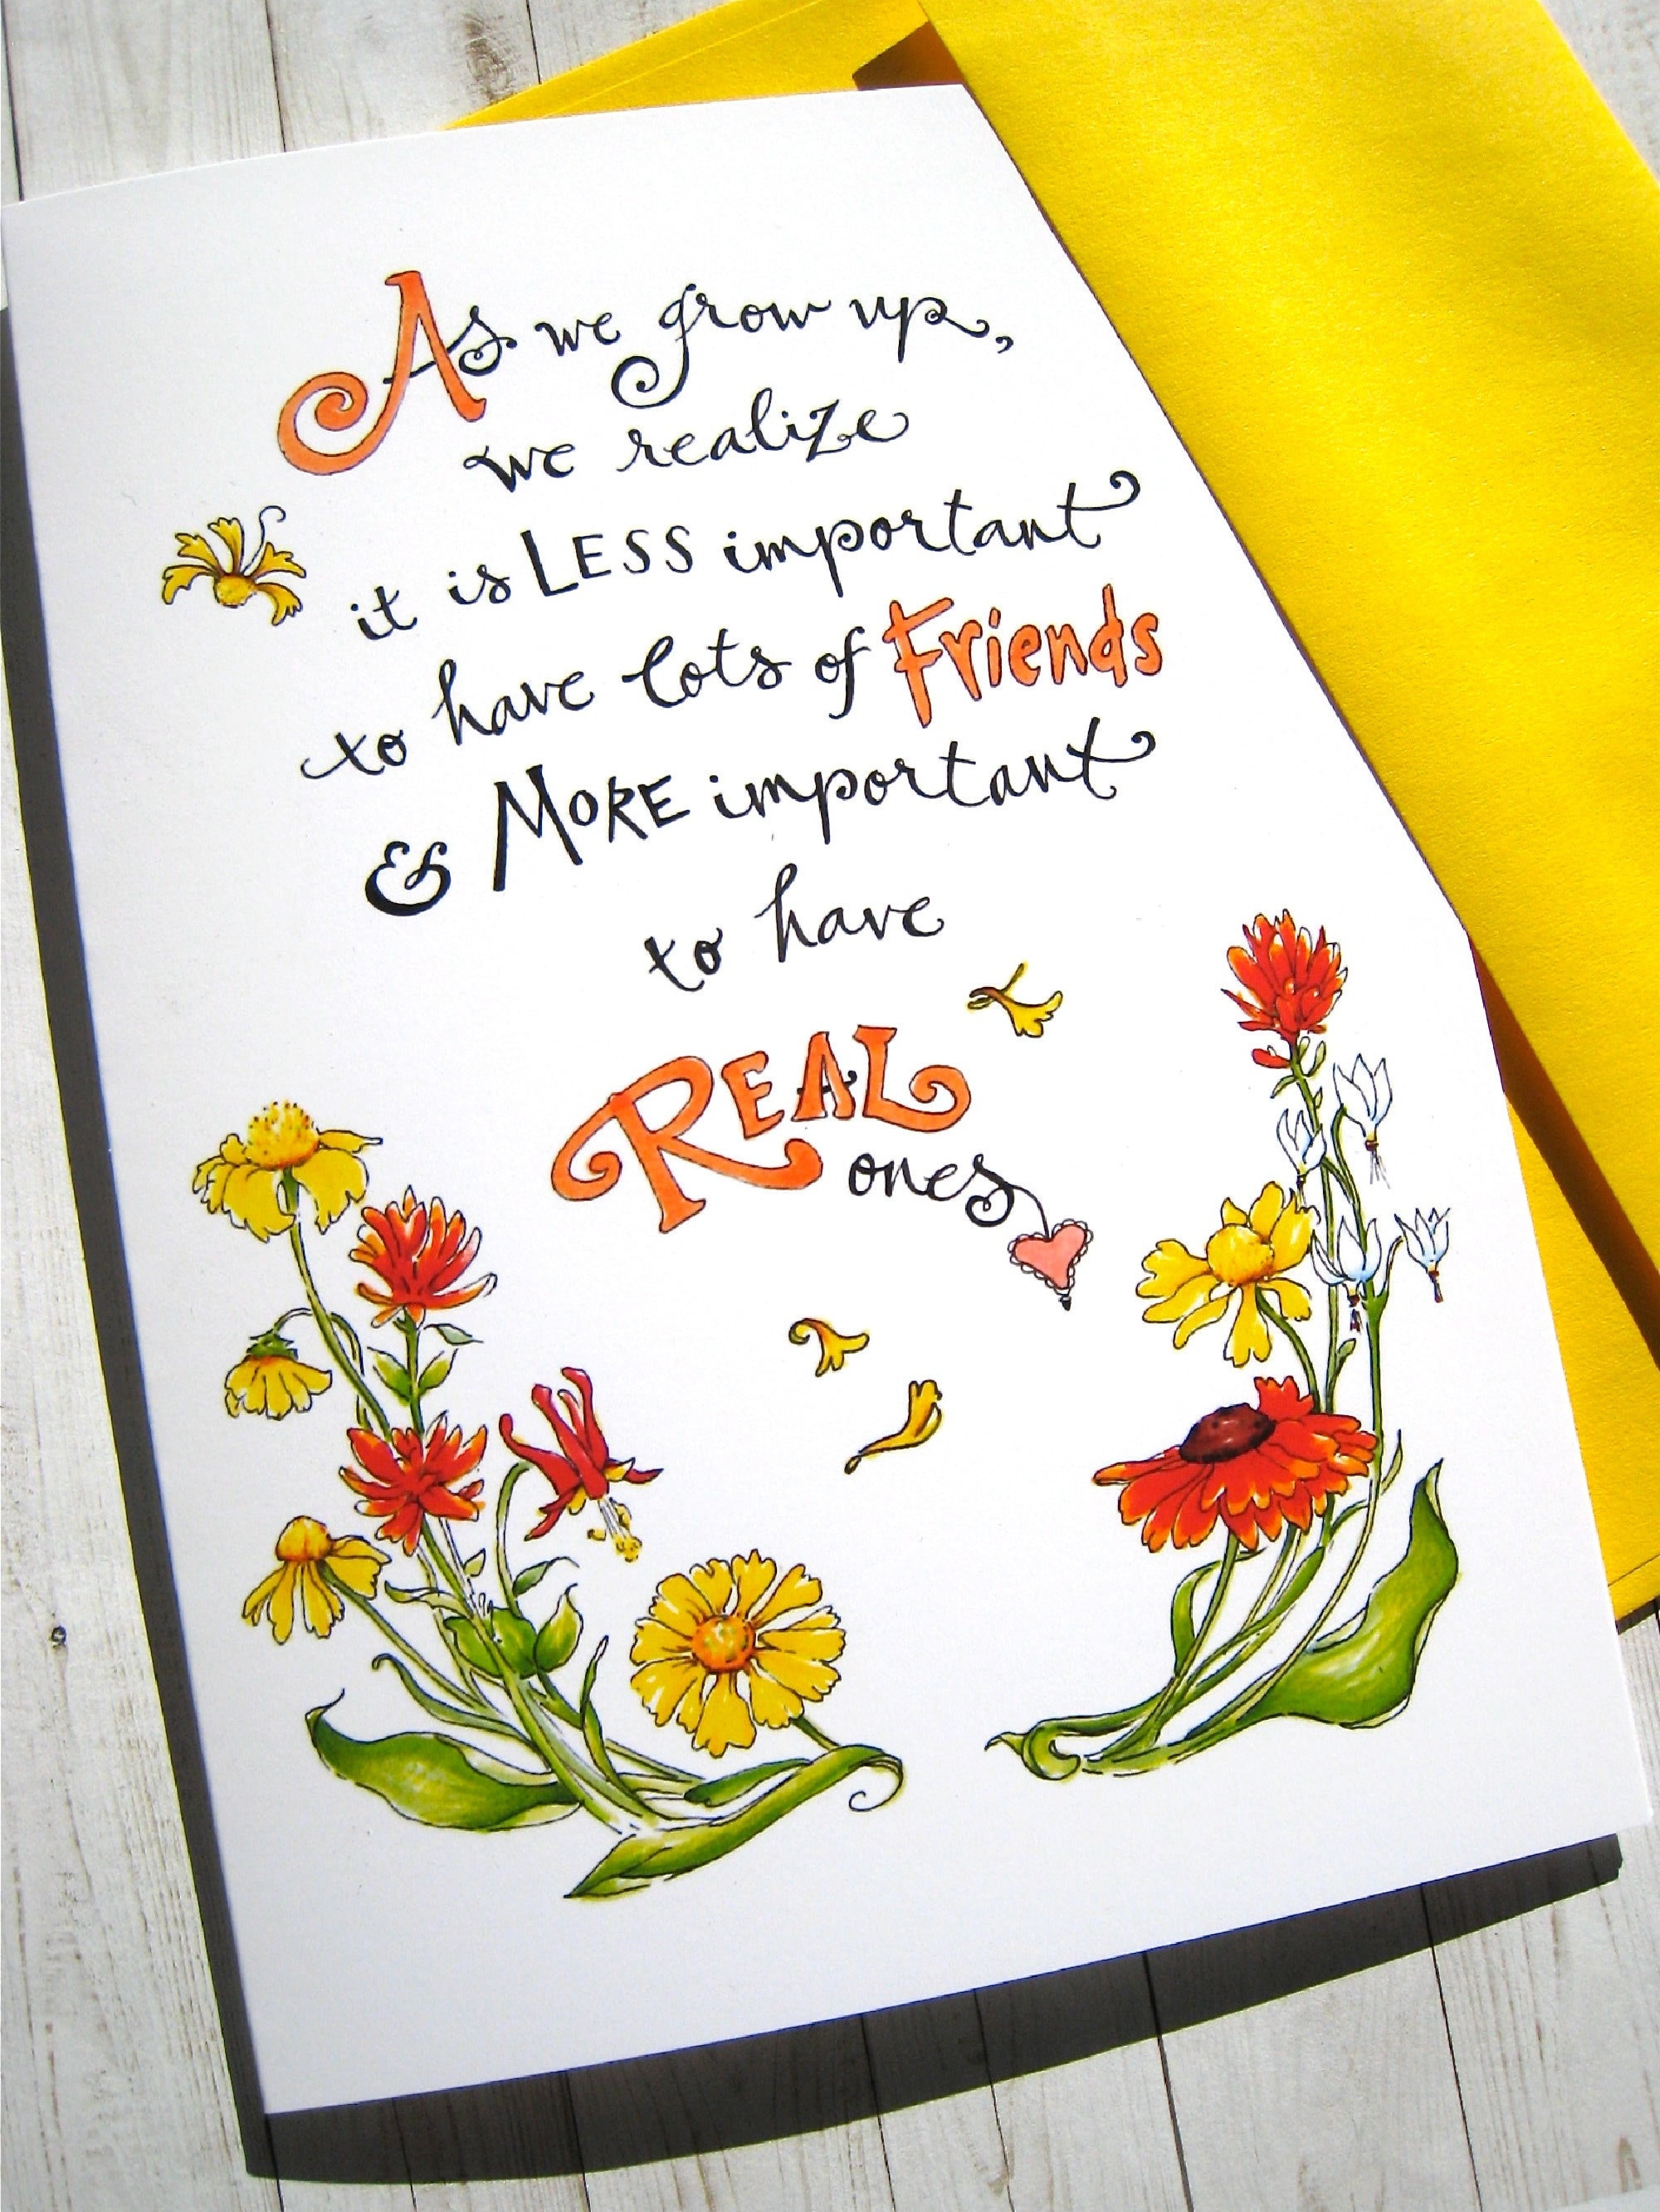 As we grow up,
we realize
it is LESS important
to have lots of Friends
& MORE important
to have
REAL
ones